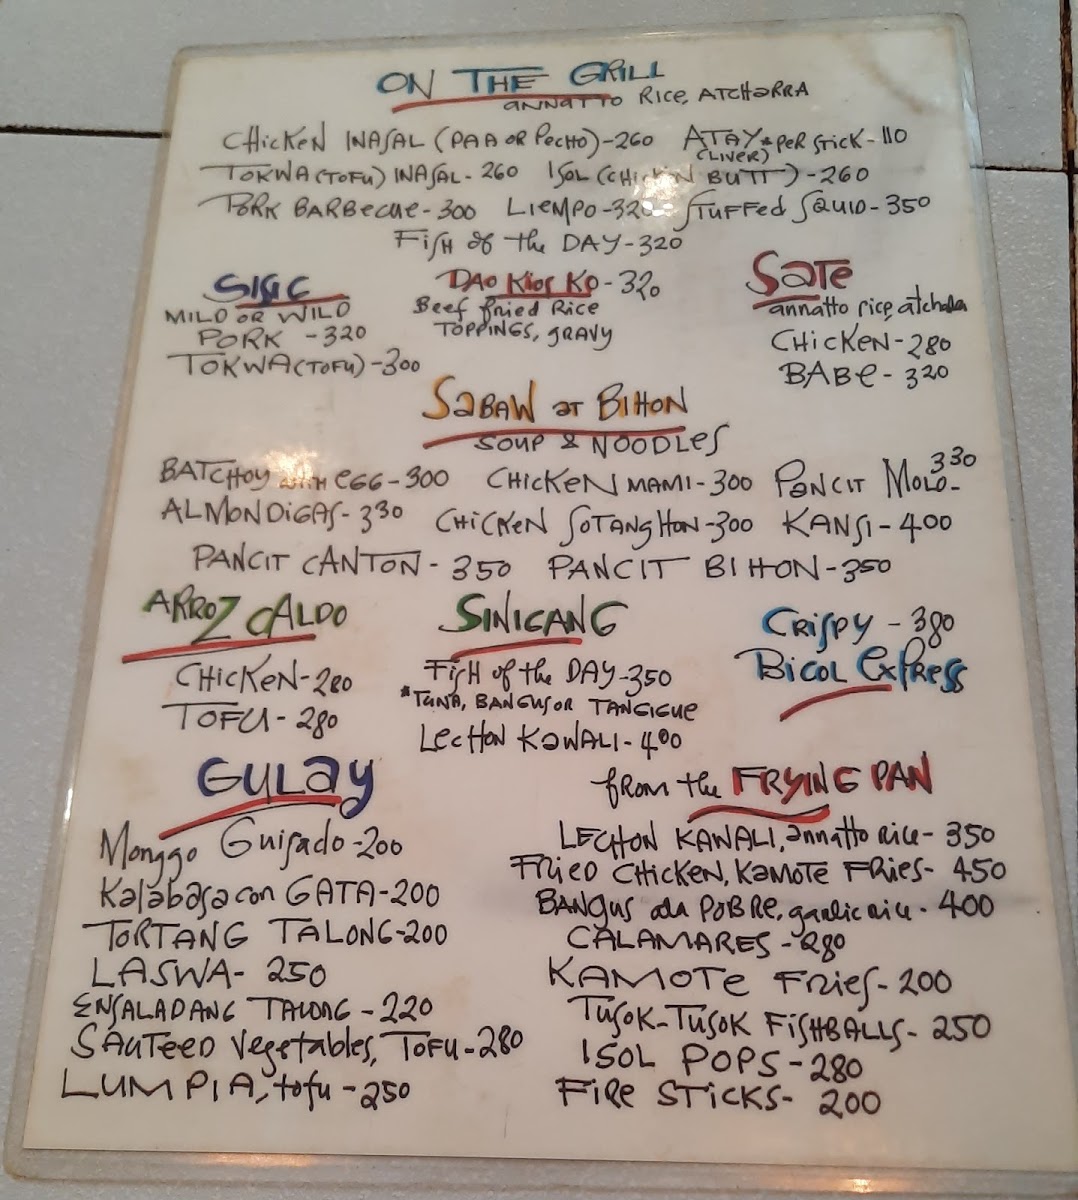 ON THE GRILL
annatto Rice, ATCHARRA
CHicKeN INASAL (PAA OR PecHO)-260 ATAY * PeR STicK-110
(LIVER)
TOKWA(TOFU) INASAL-260 ISOL (CHICKEN BUTT)-260
PORK BARBecue-300 LIEMPO-320 STUFFed SQUID-350
FisH of the DAY-320
SISIG
MILD OR WILD
PORK -320
TOKWA(TOFU)-300
DAO Kios KO-320
Beef fried Rice
TOPPINGS, gRAVY
SaTe
annatto rice, atchara
CHicKeN-280
BABe-320
SaBAW at BIHON
SOUP & NOODLES
BATCHOY with EGG-300 CHicKeN MAMI-300 PANCIT MOLO-330
ALMONDIGAS-330 CHICKEN SOTANGHON-300 KANSI-400
PANCIT CANTON-350 PANCIT BIHON-350
ARROZ CALDO
CHICKEN-280
TOFU-280
SINIGANG
FisH of the DAY-350
*TUNA, BANGUS OR TANGIGUE
LecHON KaWALI-400
CRiSPY -380
BICOL EXPRESS
GULay
Monggo Guisado-200
Kalabasa con GATA-200
TORTANG TALONG-200
LASWA-250
ENSALADANG TALONG-220
SAUTEED Vegetables, TOFU-280
LUMPIA, tofu-250
fRom the FRYING PAN
LECHON KAWALI, annatto rice-350
FRied CHICKEN, KaMOTE FRies-450
BANgus ala POBRE, garlic rice-400
CALAMARES-280
KAMOTE FRies-200
TUSOK-TUSOK FiSHBALLS-250
ISOL POPS-280
FIRE STICKS-200